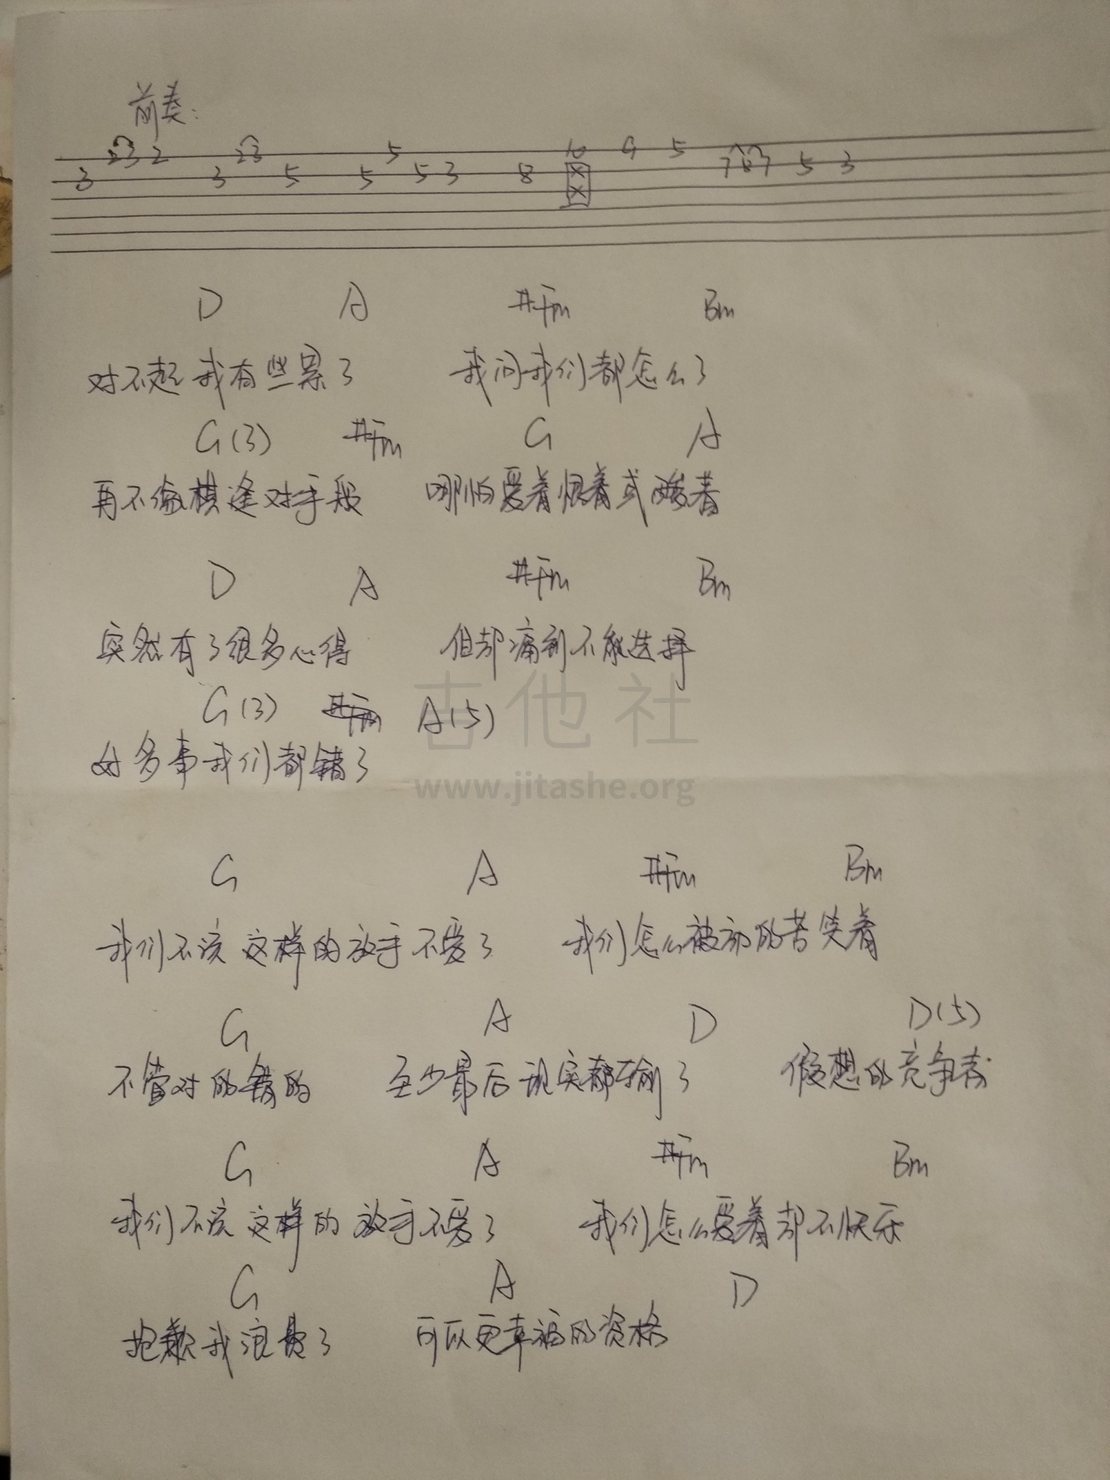 前奏:
3 23 2 3 23 5 5 5 5 3 8 10 9 5 7 8 7 5 3
X
X
D A #Fm Bm
对不起 我有些累了 我问我们都怎么了
G(3) #Fm G A
再不像棋逢对手般 哪怕爱着恨着或酸着
D A #Fm Bm
突然有了很多心得 但却痛到不能选择
G(3) A(5)
好多事我们都错了
吉他社
www.jitashe.org
G A #Fm Bm
我们不该 这样的放手 不爱了 我们怎么被动的苦笑着
G A D D(5)
不管对的错的 至少最后现实都输了 假想的竞争者
G A #Fm Bm
我们不该 这样的 放手不爱了 我们怎么爱着却不快乐
G A D
抱歉我浪费了 可以更幸福的资格